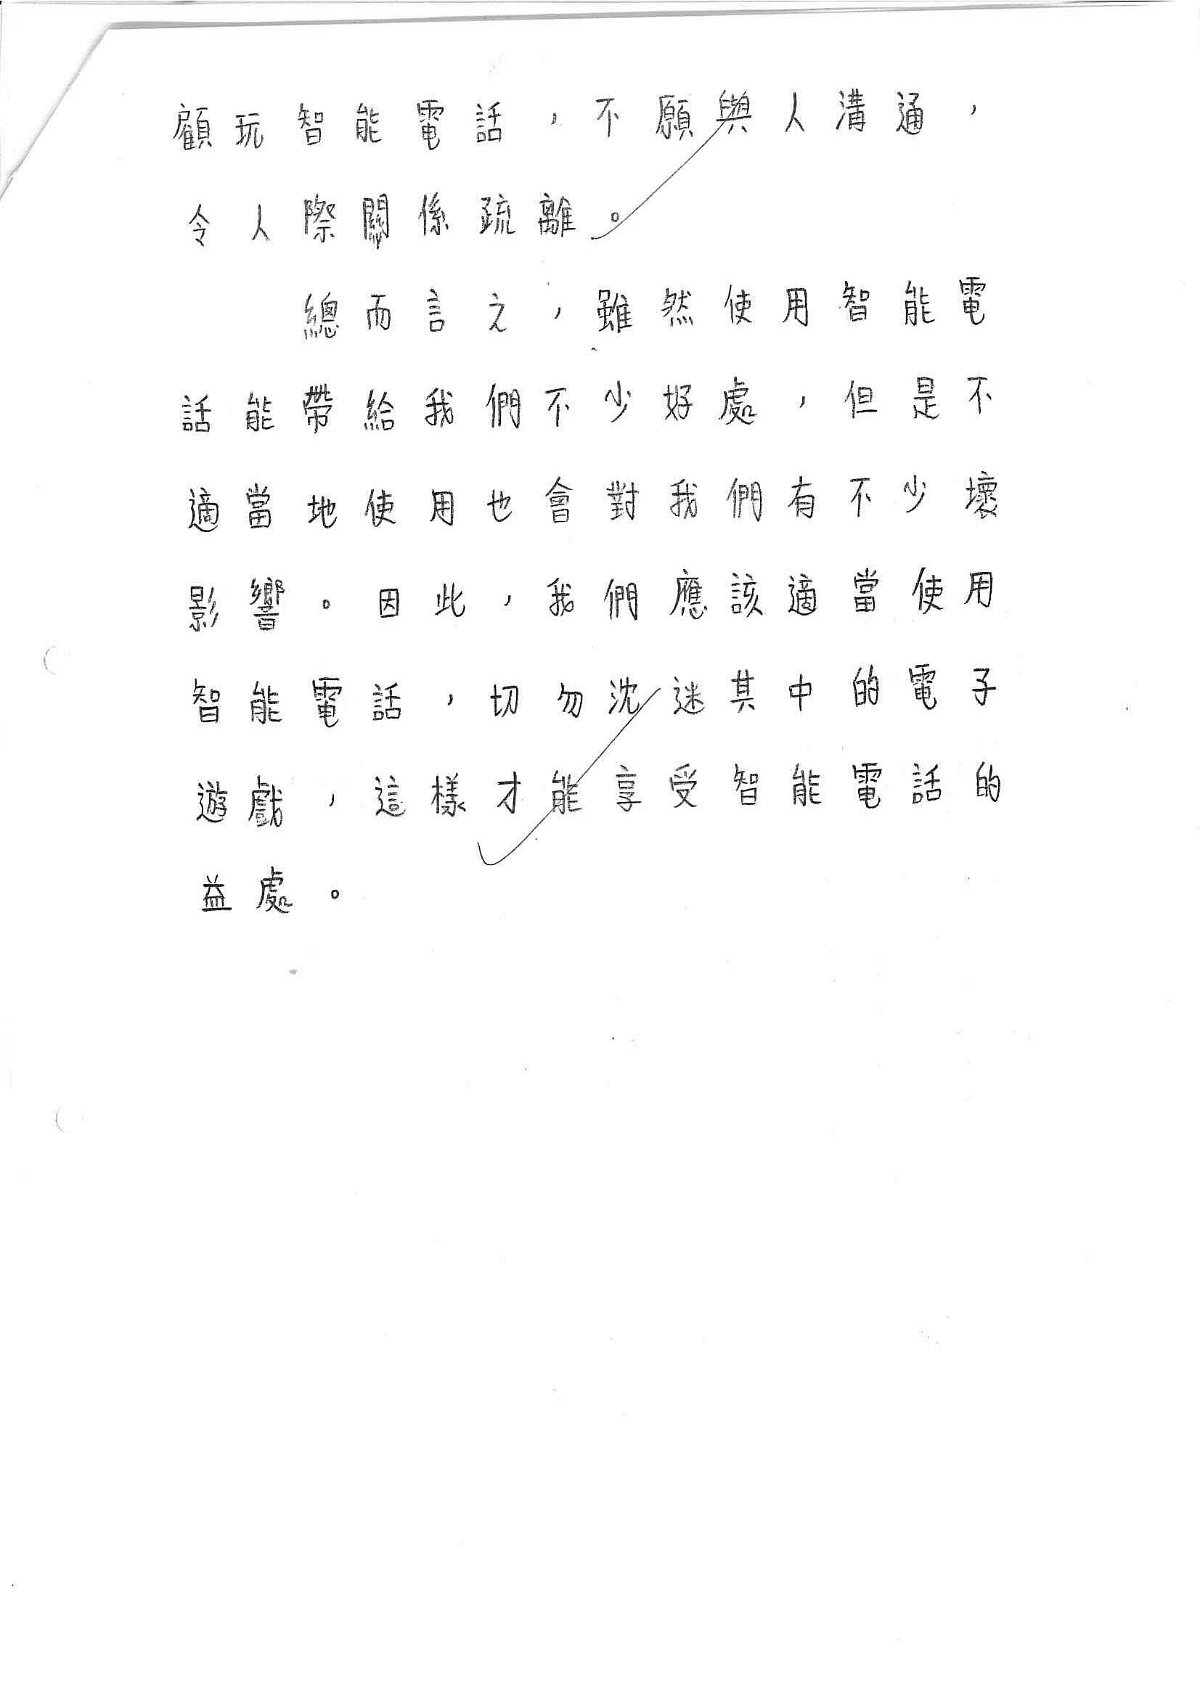 顧玩智能電話，不願與人溝通，
令人際關係疏離。
總而言之，雖然使用智能電
話能帶給我們不少好處，但是不
適當地使用也會對我們有不少壞
影響。因此，我們應該適當使用
智能電話，切勿沈迷其中的電子
遊戲，這樣才能享受智能電話的
益處。